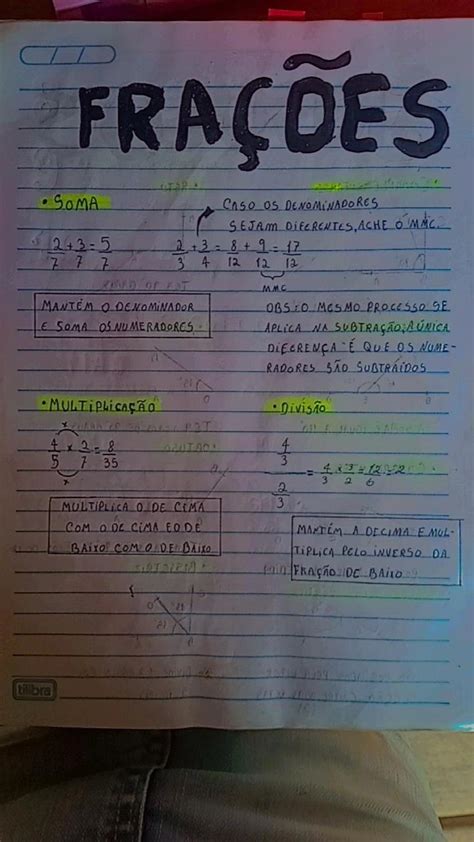 FRAÇÕES
• SOMA
CASO OS DENOMINADORES
SEJAM DIFERENTES, ACHE O MMC.
2/7 + 3/7 = 5/7
2/3 + 3/4 = 8/12 + 9/12 = 17/12
MMC
MANTÉM O DENOMINADOR
E SOMA OS NUMERADORES.
OBS: O MESMO PROCESSO SE
APLICA NA SUBTRAÇÃO, A ÚNICA
DIFERENÇA É QUE OS NUME-
RADORES SÃO SUBTRAÍDOS
• MULTIPLICAÇÃO
x
4/5 x 2/7 = 8/35
x
MULTIPLICA O DE CIMA
COM O DE CIMA E O DE
BAIXO COM O DE BAIXO
• DIVISÃO
4/3 / 2/3 = 4/3 x 3/2 = 12/6 = 2
MANTÉM A DE CIMA E MUL-
TIPLICA PELO INVERSO DA
FRAÇÃO DE BAIXO
tilibra